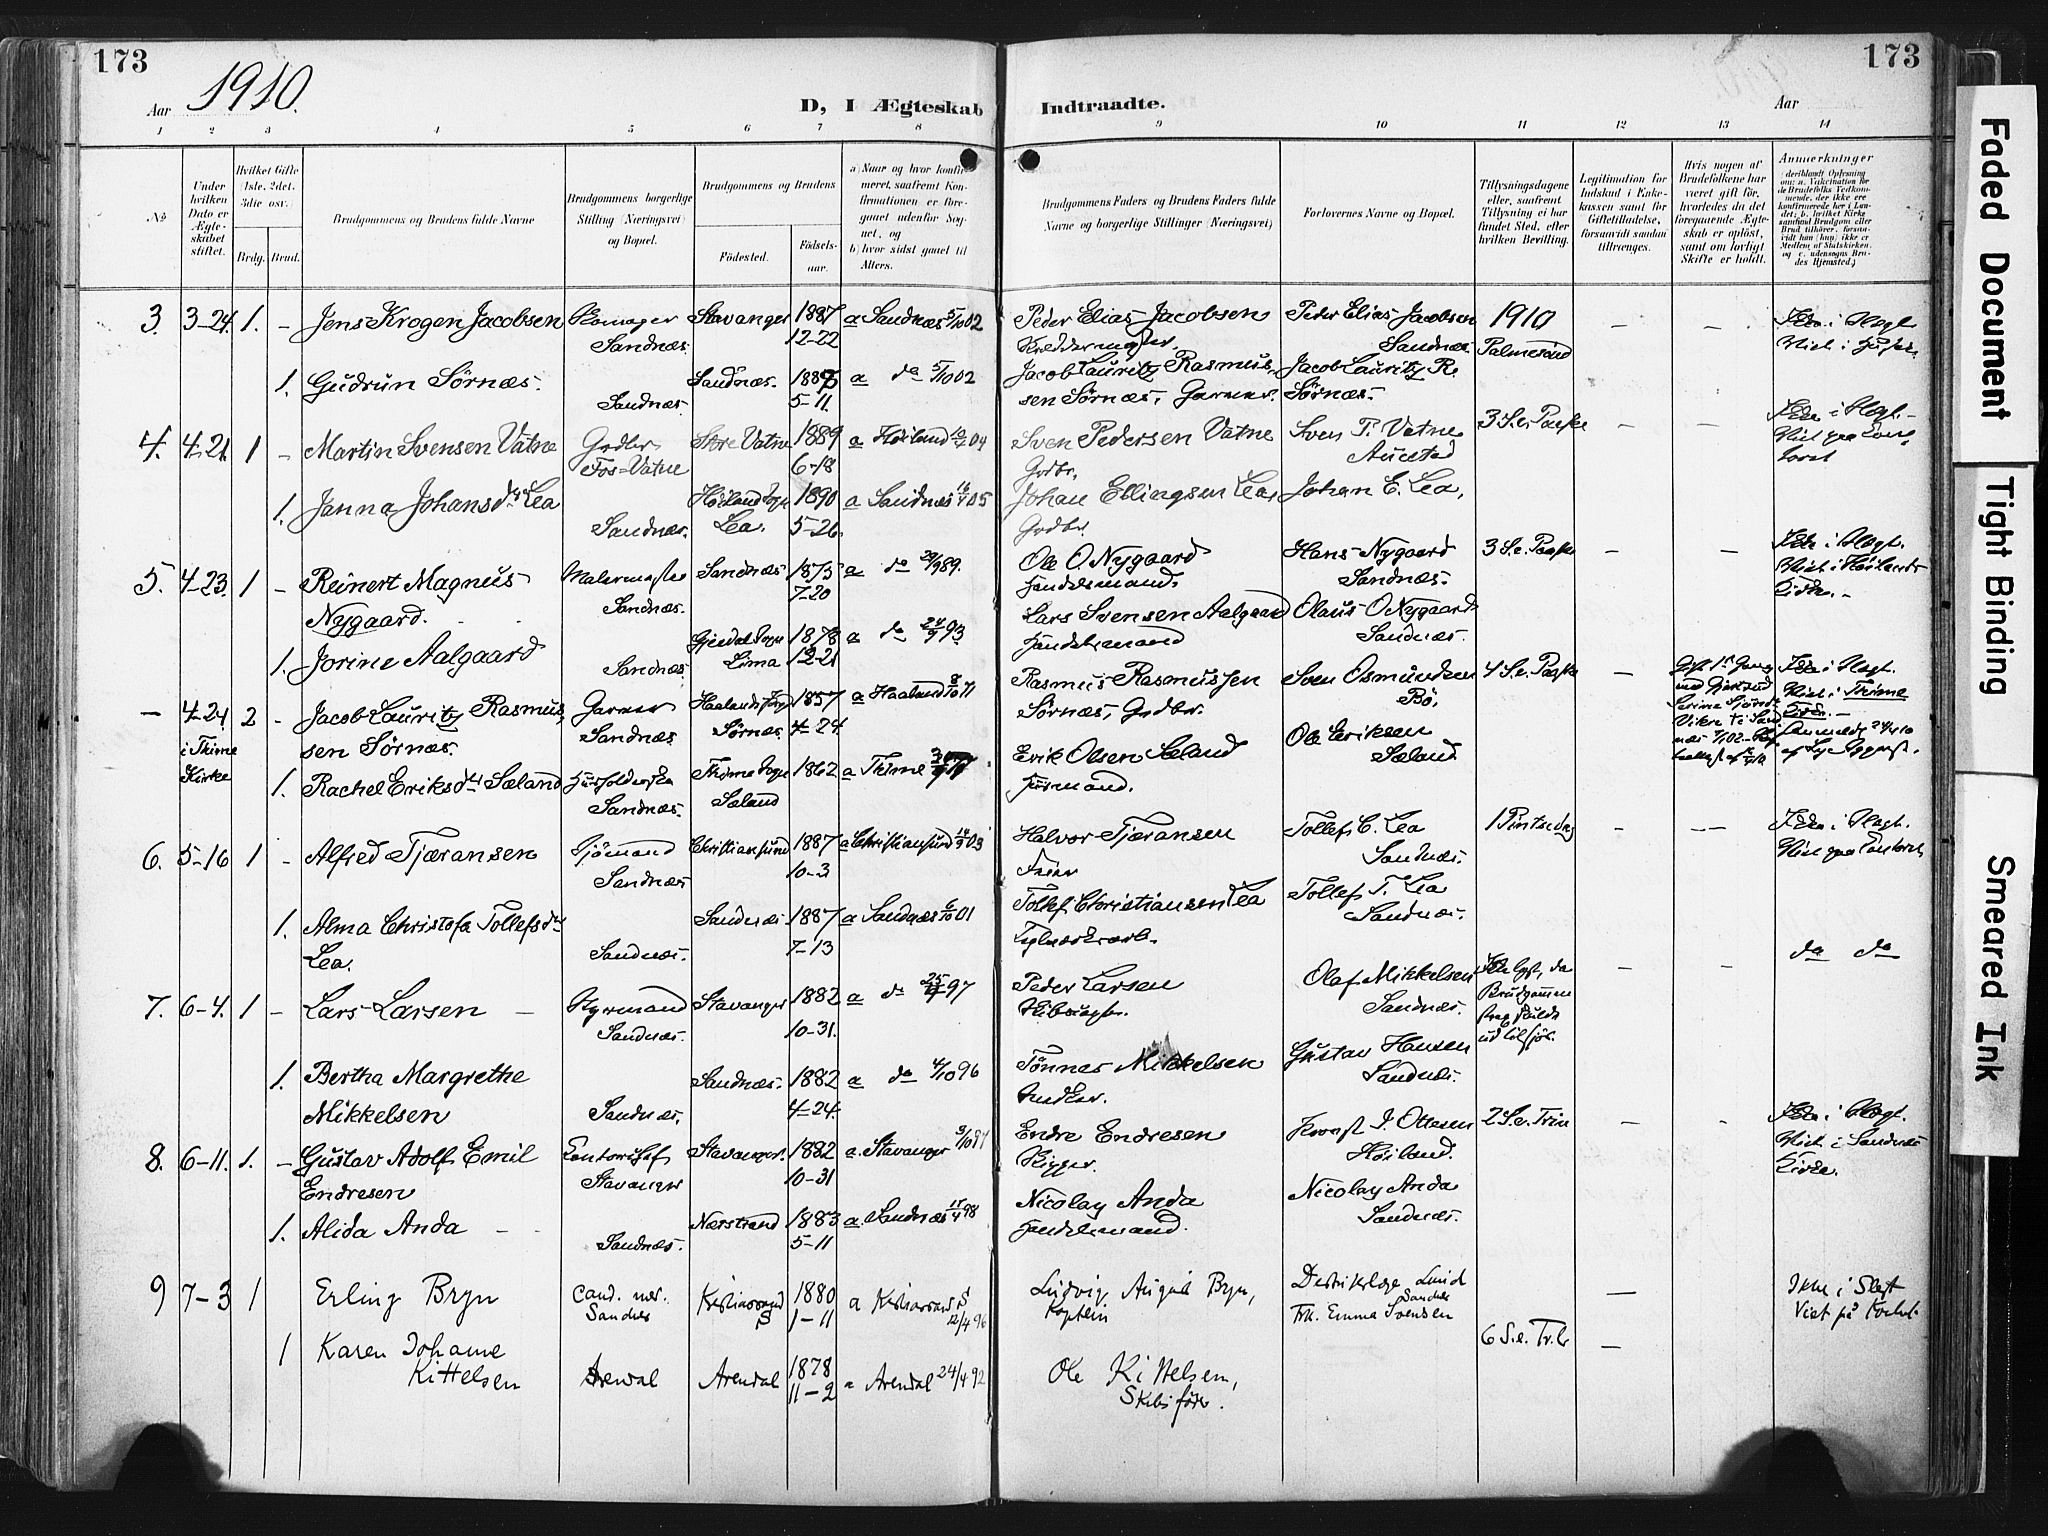 173
1910.
Aar
D, I Ægteskab
Indtraadte.
Aar
173
1 2 3 4 5 6 7 8 9 10 11 12 13 14
No
Under hvilken Dato er Ægteskabet stiftet.
Hvilket Gifte (1ste, 2det, 3die osv.)
Brdg. Brud.
Brudgommens og Brudens fulde Navne
Brudgommens borgerlige Stilling (Næringsvei) og Bopæl.
Brudgommens og Brudens
Födested.
Födselsaar.
a) Naar og hvor konfirmeret, saafremt Konfirmationen er foregaaet udenfor Sognet, og
b) hvor sidst gaaet til Alters.
Brudgommens Faders og Brudens Faders fulde Navne og borgerlige Stillinger (Næringsvei)
Forlovernes Navne og Bopæl.
Tillysningsdagene eller, saafremt Tillysning ei har fundet Sted, efter hvilken Bevilling.
Legitimation for Indskud i Enkekassen samt for Giftetilladelse, forsaavidt saadan tiltrænges.
Hvis nogen af Brudefolkene har været gift för, hvorledes da det foregaaende Ægteskab er oplöst, samt om lovligt Skifte er holdt.
Anmerkninger
3. 3-24. 1. - Jens Krogen Jacobsen
Sandnæs.
Stavanger 1887 12-22
a Sandnæs 5/10 02
Peder Elias Jacobsen
Peder Elias Jacobsen
Sandnæs.
1910
Palmesønd
- -
1. Gudrun Sörnæs.
Sandnæs
Sandnæs. 1887 5-11.
a do 5/10 02
Jacob Lauritz Rasmussen Sörnæs, Garver.
Jacob Lauritz R. Sörnæs.
4. 4-21. 1 - Martin Svensen Vatne
Grdbr.
Fos-Vatne
Store Vatne 1889 6-18
a Höiland 04
Sven Pedersen Vatne
Grdbr.
Sven P. Vatne
3 S.e. Paaske
- -
1. Janna Johansdtr Lea
Sandnæs.
Höiland Sogn
Lea. 1890 5-26.
a Sandnæs 05
Johan Ellingsen Lea,
Grdbr.
Johan E. Lea,
5. 4-23. 1 - Reinert Magnus
Nygaard.
Malermester
Sandnæs.
Sandnæs 1875 7-20
a do 29/9 89.
Ole O Nygaard
Handelsmand.
Hans Nygaard
Sandnæs.
3 S.e. Paaske
- -
Ikke i Slægt.
Viet i Höilands
Kirke. -
1. Jorine Aalgaard
Sandnæs
Gjesdal Sogn
Lima 1878 12-21
a do 24/9 93
Lars Svensen Aalgaard
Handelsmand
Olaus O Nygaard
Sandnæs.
- 4-24 2 - Jacob Lauritz Rasmussen Sörnæs.
i Thime
Kirke
Garver
Sandnæs
Haaland Sogn
Sörnæs 1857 4-24
a Haaland 8/10 71
Rasmus Rasmussen
Sörnæs, Grdbr.
Sven Osmundsen
Bö,
4 S.e. Paaske
-
Ikke i Slægt.
Viet i Thime
Kirke. -
1. Rachel Eriksdtr Sæland
Sandnæs.
Thime Sogn
Sæland 1862
a Thime
Erik Olsen Sæland
Husmand.
Ole Eriksen
Sæland
6. 5-16 1 - Alfred Tjæransen
Sjömand
Sandnæs
Christiansund 1887 10-3
a Christiansund 03
Halvor Tjæransen
Tollef C. Lea
Sandnæs.
1 Pintsedag
- -
Ikke i Slægt.
Viet paa Kontoret
1. Alma Christofa Tollefsdtr
Lea.
Sandnæs.
Sandnæs 1887 7-13
a Sandnæs 6/10 01
Tollef Christiansen Lea
Tollef T. Lea
Sandnæs.
7. 6-4. 1 - Lars Larsen -
Styrmand
Sandnæs.
Stavanger 1882 10-31.
a do 97
Peder Larsen
Olaf Mikkelsen
Sandnæs.
Ikke lyst, da
Brudgommen
strax skulde
ud tilsjös.
- -
do do
1. Bertha Margrethe
Mikkelsen
Sandnæs.
Sandnæs. 1882 4-24.
a do 4/10 96
Tönnes Mikkelsen
Gustav Hansen
Sandnæs.
8. 6-11. 1. - Gustav Adolf Emil
Endresen
Kontorchef
Stavanger
Stavanger. 1882 10-31
a. Stavanger 3/10 97
Endre Endresen
Rigger.
Höiland.
2 S.e. Trin
- -
Ikke i Slægt.
Viet i Sandnæs
Kirke.
1. Alida Anda - -
Sandnæs.
Nærstrand 1883 5-11
a. Sandnæs 17/4 98
Nicolay Anda
Handelsmand.
Nicolay Anda
Sandnæs.
9 7-3 1 Erling Bryn
Cand. med.
Sandnes
Kristianssand S 1880 1-11
a Kristianssand S
12/4 96
Ludvig August Bryn,
Kaptein
Distriktslæge Lund
Sandnes
Frk. Emma Svensen
-
Ikke i Slegt
Viet på Kontoret
1 Karen Johanne
Kittelsen
Arendal
Arendal 1878 11-2
a Arendal 24/4 92
Ole Kittelsen,
Skibsförer.
6 S.e. Tr.
-
Faded Document
Tight Binding
Smeared Ink